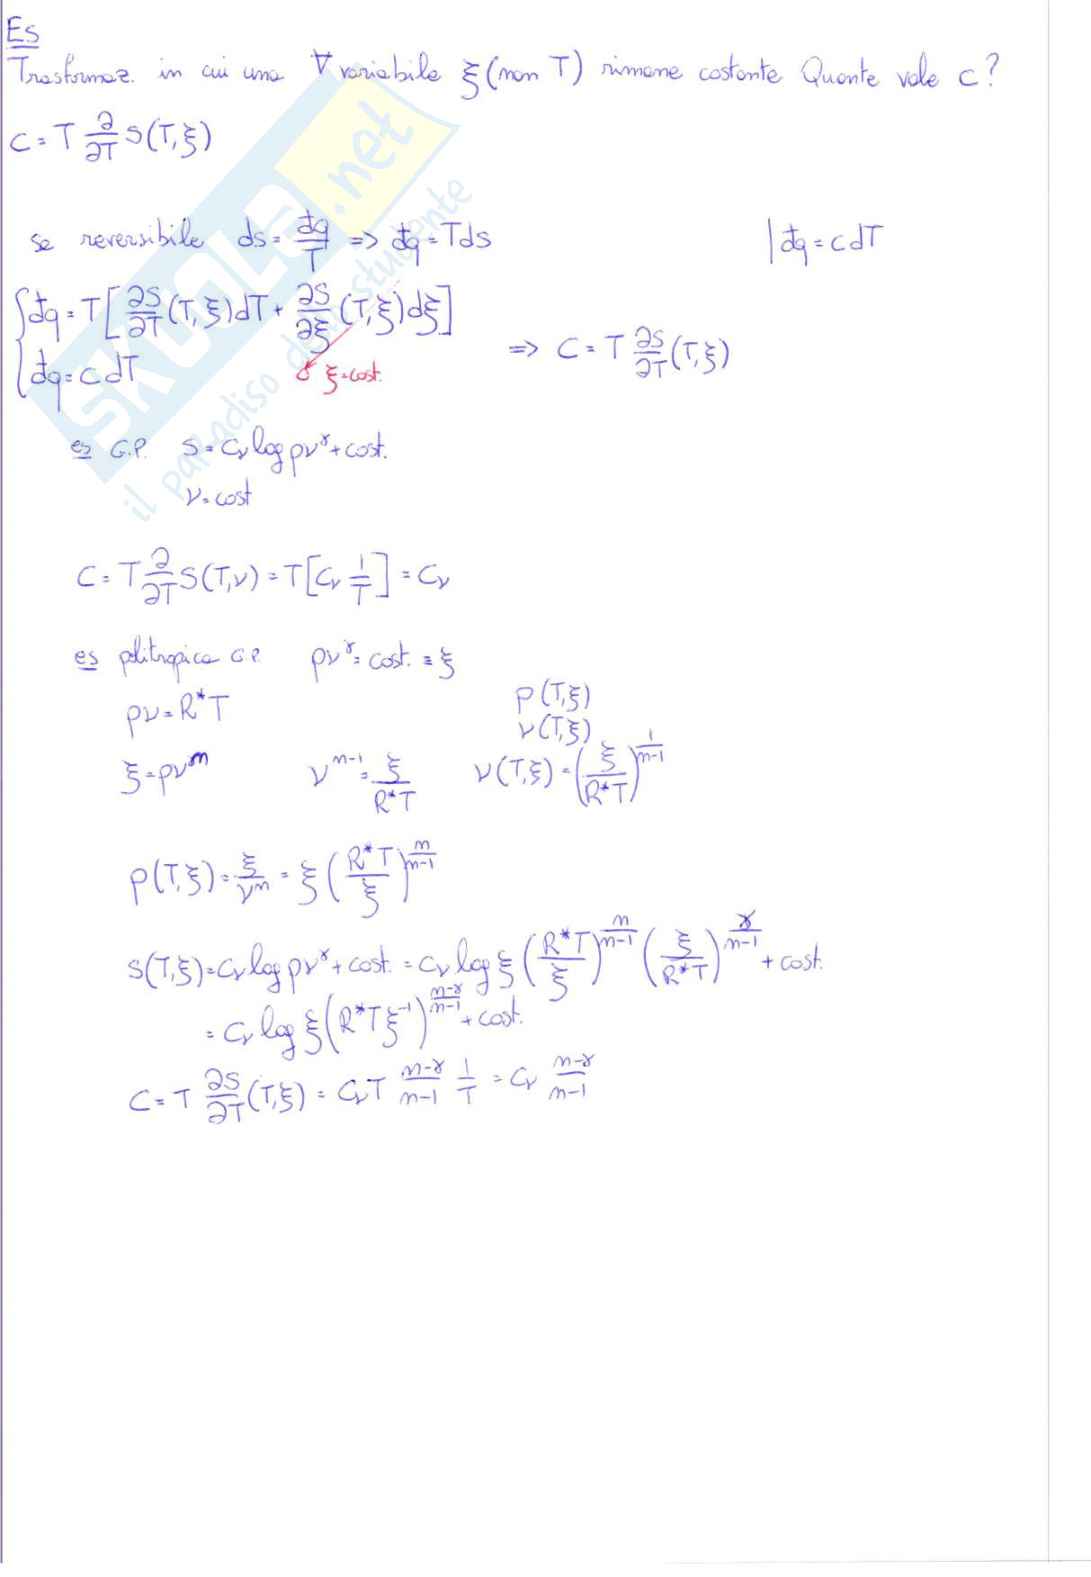 Es
Trasformaz. in cui una ∀ variabile ξ (non T) rimane costante Quanto vale c?
c = T ∂/∂T s(T,ξ)
se reversibile ds = đq/T => đq = Tds | đq = cdT
đq = T[∂s/∂T (T,ξ)dT + ∂s/∂ξ (T,ξ)dξ]
đq = cdT ξ=cost. => c = T ∂s/∂T (T,ξ)
es G.P. s = cᵥ log pv^γ + cost.
v = cost
c = T ∂/∂T s(T,v) = T[cᵥ 1/T] = cᵥ
es politropica G.P. pv^γ = cost. = ξ
pv = R*T p(T,ξ)
v(T,ξ)
ξ = pv^n v^(n-1) = ξ/(R*T) v(T,ξ) = (ξ/(R*T))^(1/(n-1))
p(T,ξ) = ξ/v^n = ξ (R*T/ξ)^(n/(n-1))
s(T,ξ) = cᵥ log pv^γ + cost. = cᵥ log ξ (R*T/ξ)^(n/(n-1)) (ξ/(R*T))^(γ/(n-1)) + cost.
= cᵥ log ξ (R*Tξ^-1)^((n-γ)/(n-1)) + cost.
c = T ∂s/∂T (T,ξ) = cᵥT (n-γ)/(n-1) 1/T = cᵥ (n-γ)/(n-1)
SKUOLA.net
il paradiso dello studente